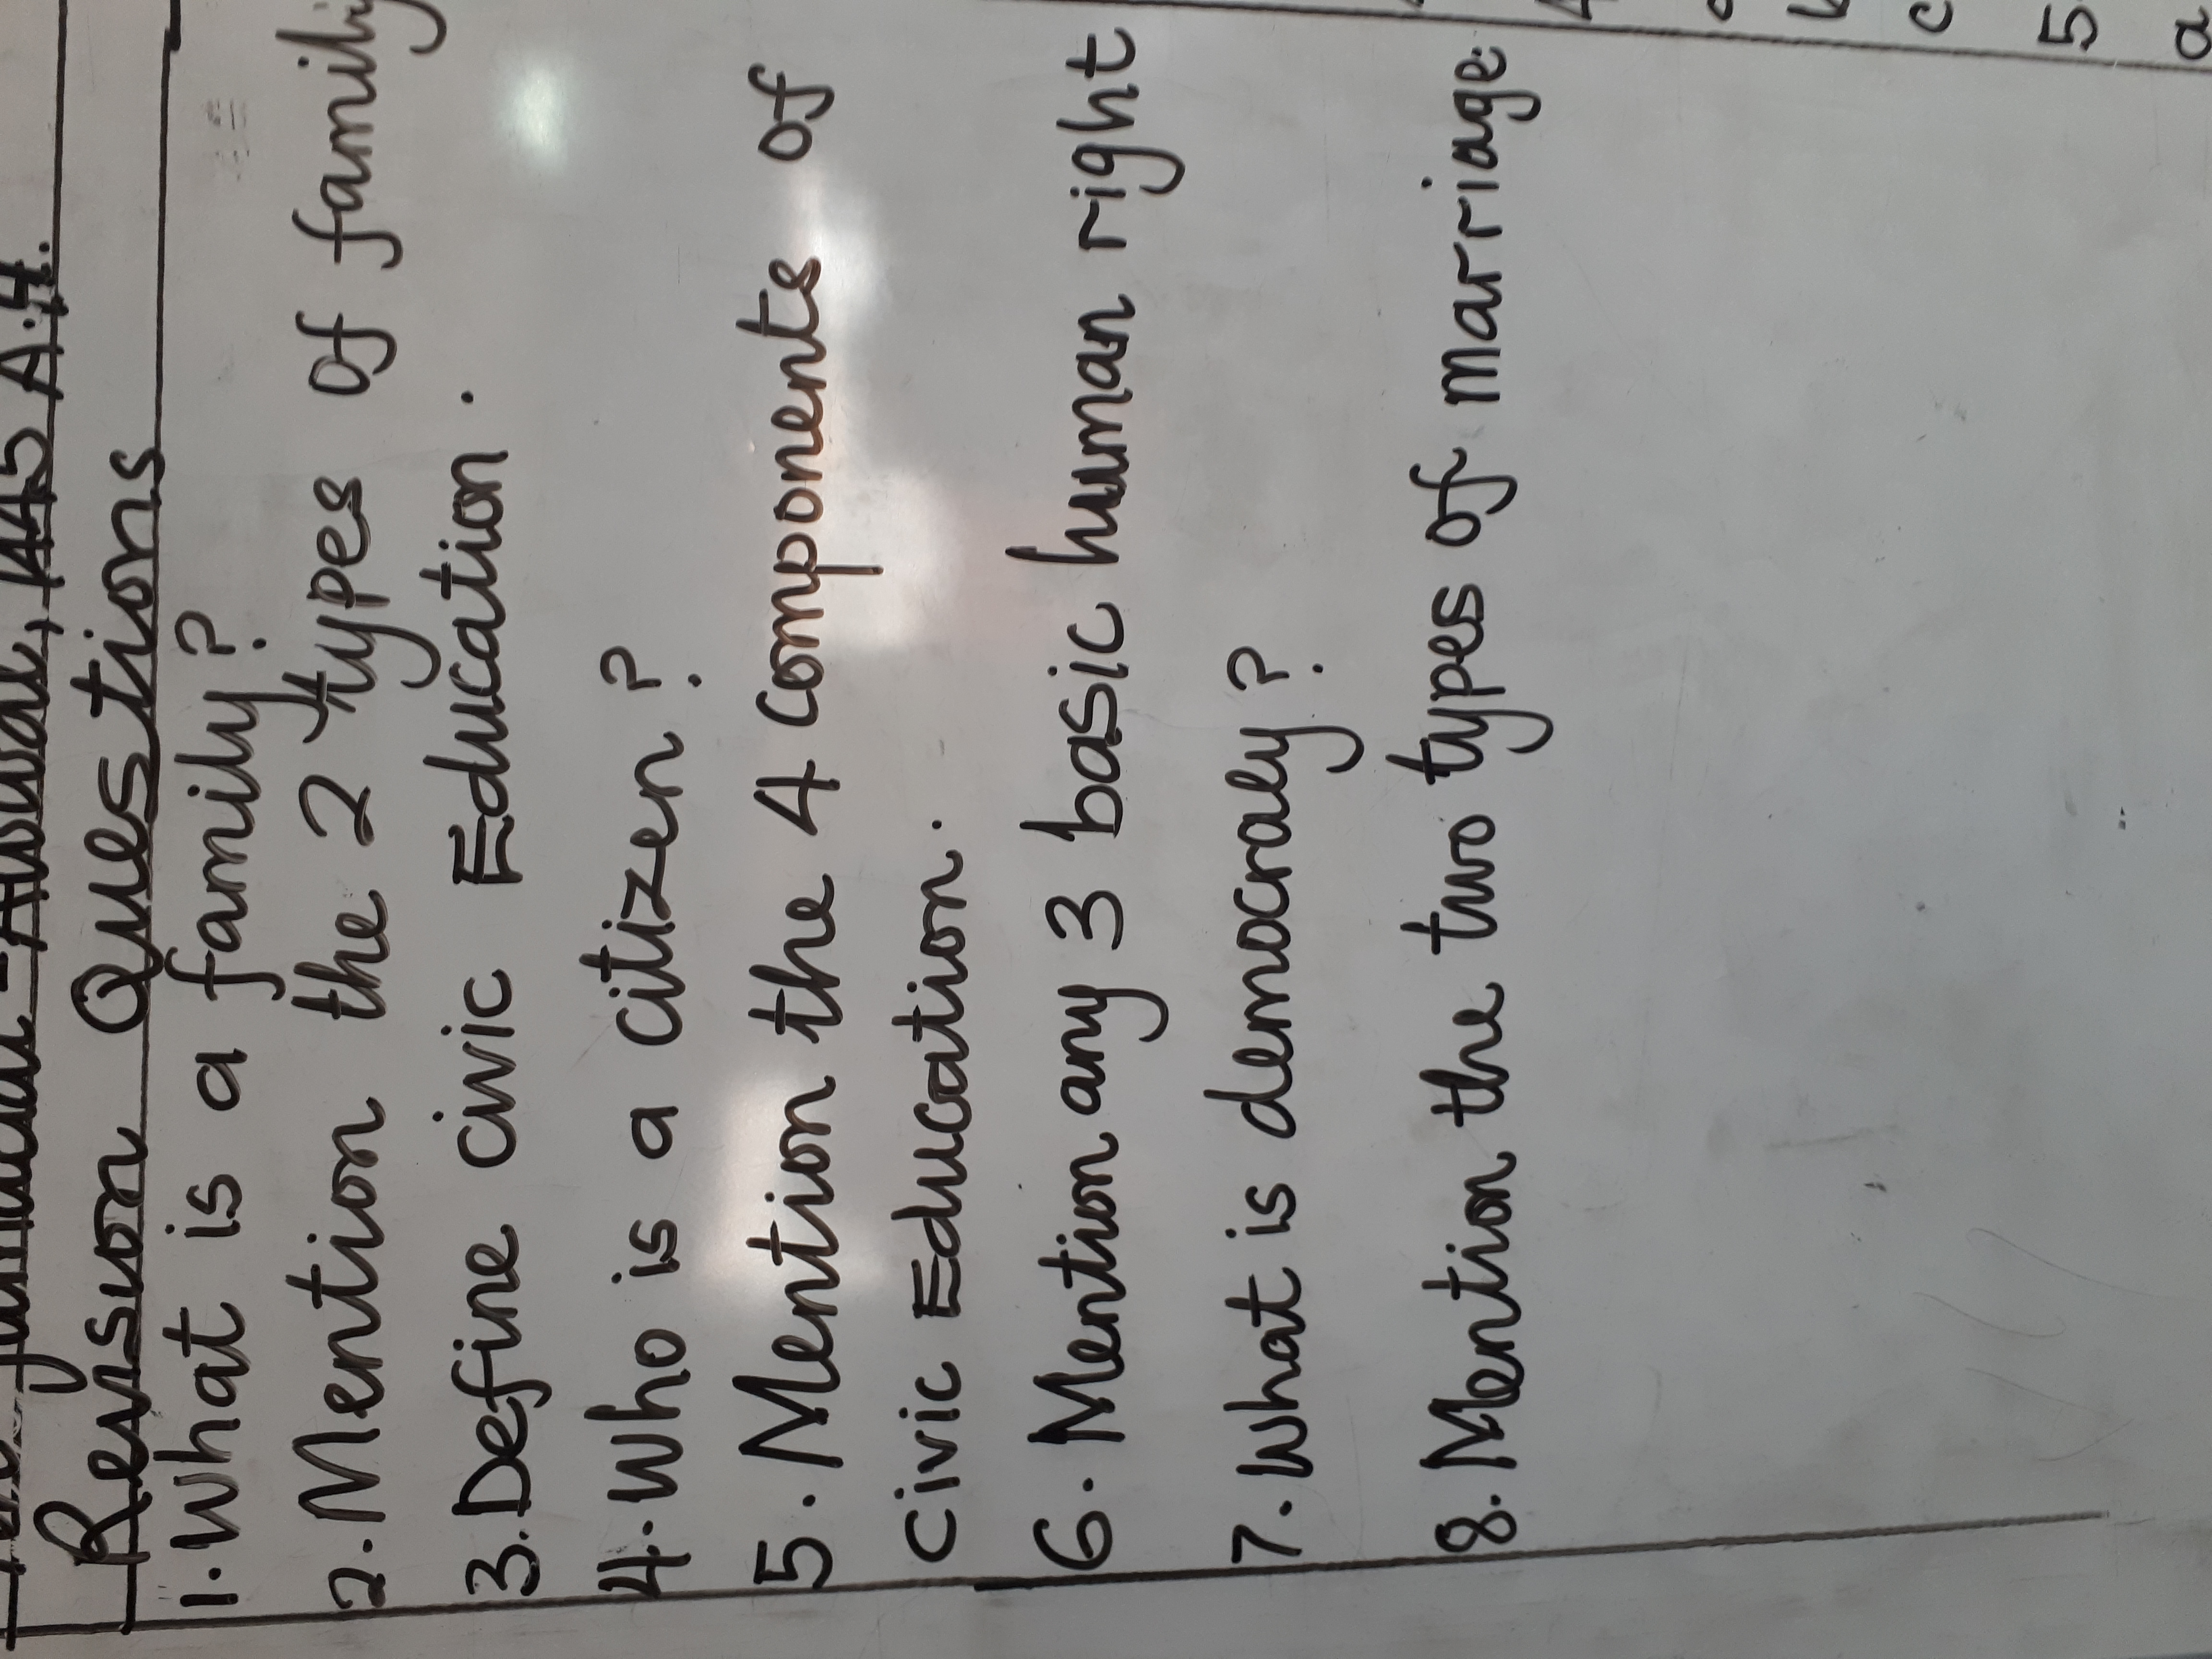 Revision Questions
1. What is a family?
2. Mention the 2 types of family
3. Define Civic Education.
4. Who is a citizen?
5. Mention the 4 components of
Civic Education.
6. Mention any 3 basic human right
7. What is democracy?
8. Mention the two types of marriage.
c
5.
a